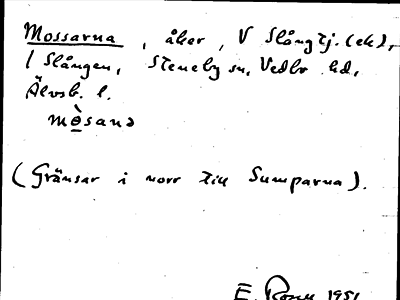 Mossarna, åker, V Slångtj. (ek),
I Slången, Steneby sn, Vedbo hd,
Älvsb. l.
mòsana
(Gränsar i norr till Sumparna).
E. Rosell 1951